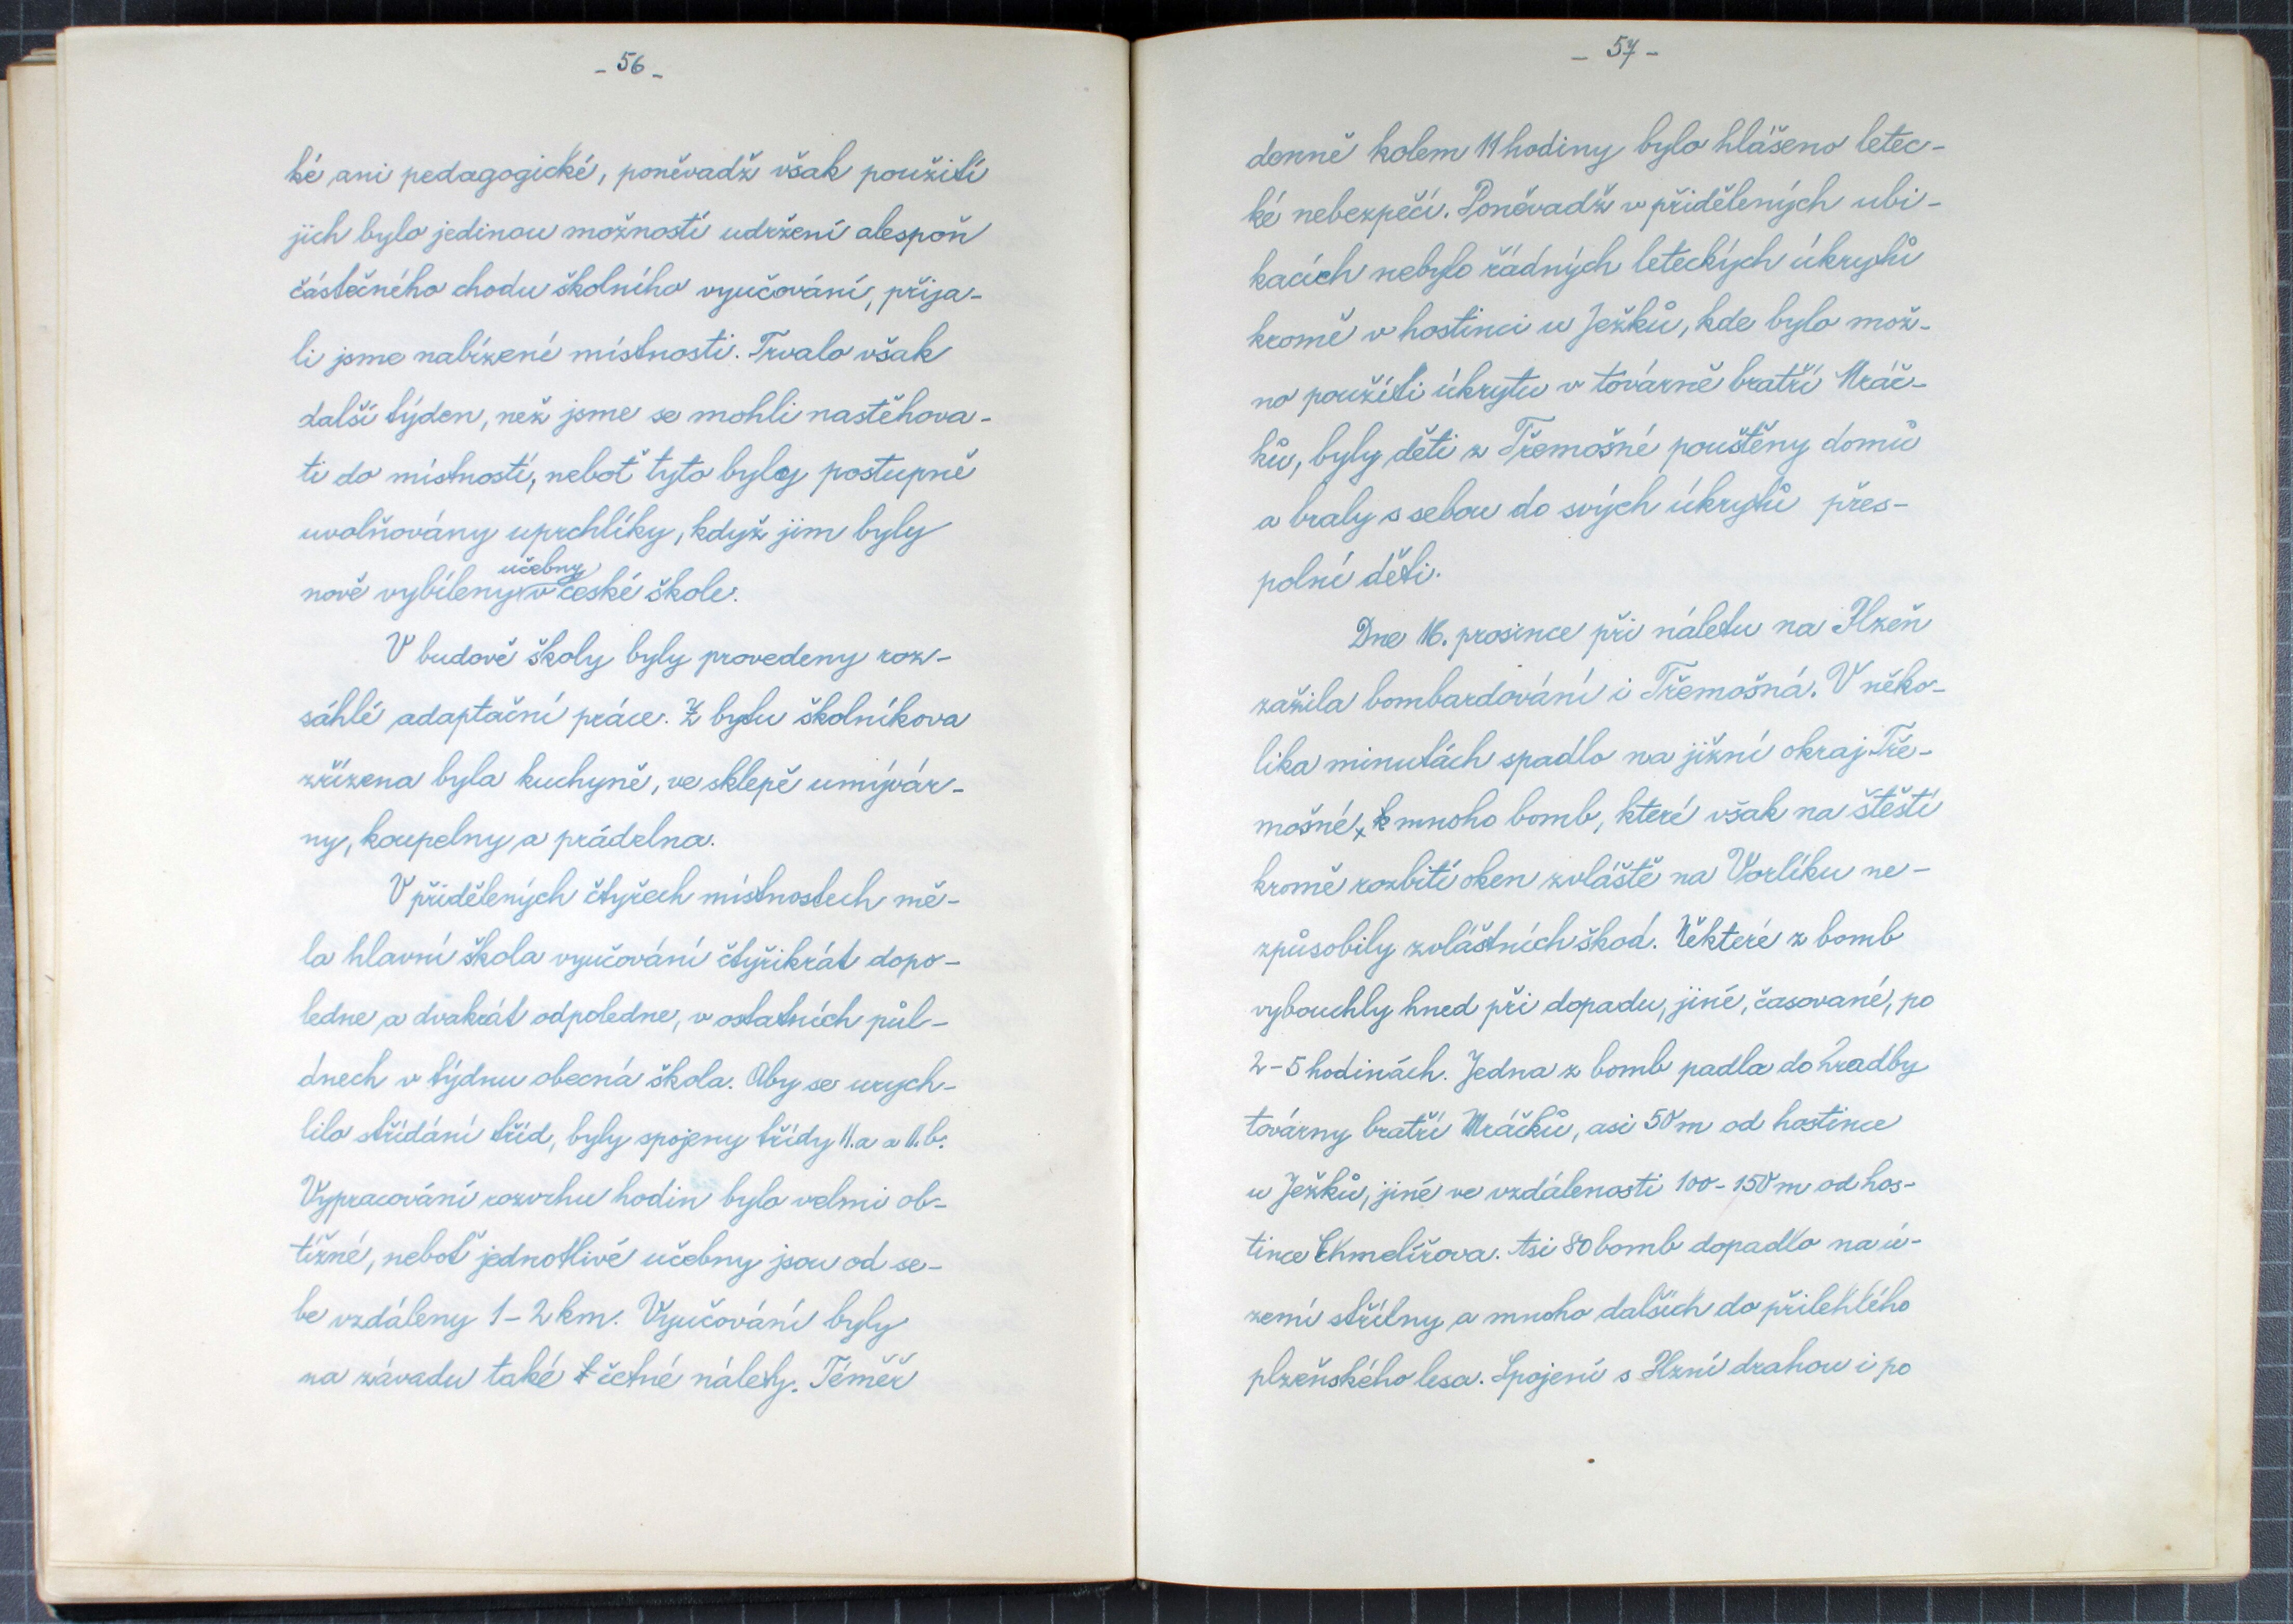 - 56 -
ké ani pedagogické, poněvadž však použití
jich bylo jedinou možností udržení alespoň
částečného chodu školního vyučování, přija-
li jsme nabízené místnosti. Trvalo však
další týden, než jsme se mohli nastěhova-
ti do místností, neboť tyto byly postupně
uvolňovány uprchlíky, když jim byly
učebny
nově vybíleny v české škole.
V budově školy byly provedeny roz-
sáhlé adaptační práce. Z bytu školníkova
zřízena byla kuchyně, ve sklepě umývár-
ny, koupelny a prádelna.
V přidělených čtyřech místnostech mě-
la hlavní škola vyučování čtyřikrát dopo-
ledne a dvakrát odpoledne, v ostatních půl-
dnech v týdnu obecná škola. Aby se urych-
lilo střídání tříd, byly spojeny třídy II.a a II.b.
Vypracování rozvrhu hodin bylo velmi ob-
tížné, neboť jednotlivé učebny jsou od se-
be vzdáleny 1-2 km. Vyučování byly
na závadu také četné nálety. Téměř
- 57 -
denně kolem 11 hodiny bylo hlášeno letec-
ké nebezpečí. Poněvadž v přidělených ubi-
kacích nebylo řádných leteckých úkrytů
kromě v hostinci u Ježků, kde bylo mož-
no použíti úkrytu v továrně bratří Mráč-
ků, byly děti z Třemošné pouštěny domů
a braly s sebou do svých úkrytů přes-
polní děti.
Dne 16. prosince při náletu na Plzeň
zažila bombardování i Třemošná. V něko-
lika minutách spadlo na jižní okraj Tře-
mošné mnoho bomb, které však na štěstí
kromě rozbití oken zvláště na Vorlíku ne-
způsobily zvláštních škod. Některé z bomb
vybouchly hned při dopadu, jiné, časované, po
2-5 hodinách. Jedna z bomb padla do hradby
továrny bratří Mráčků, asi 50 m od hostince
u Ježků, jiné ve vzdálenosti 100-150 m od hos-
tince Chmelířova. Asi 80 bomb dopadlo na ú-
zemí střílny a mnoho dalších do přilehlého
plzeňského lesa. Spojení s Plzní drahou i po